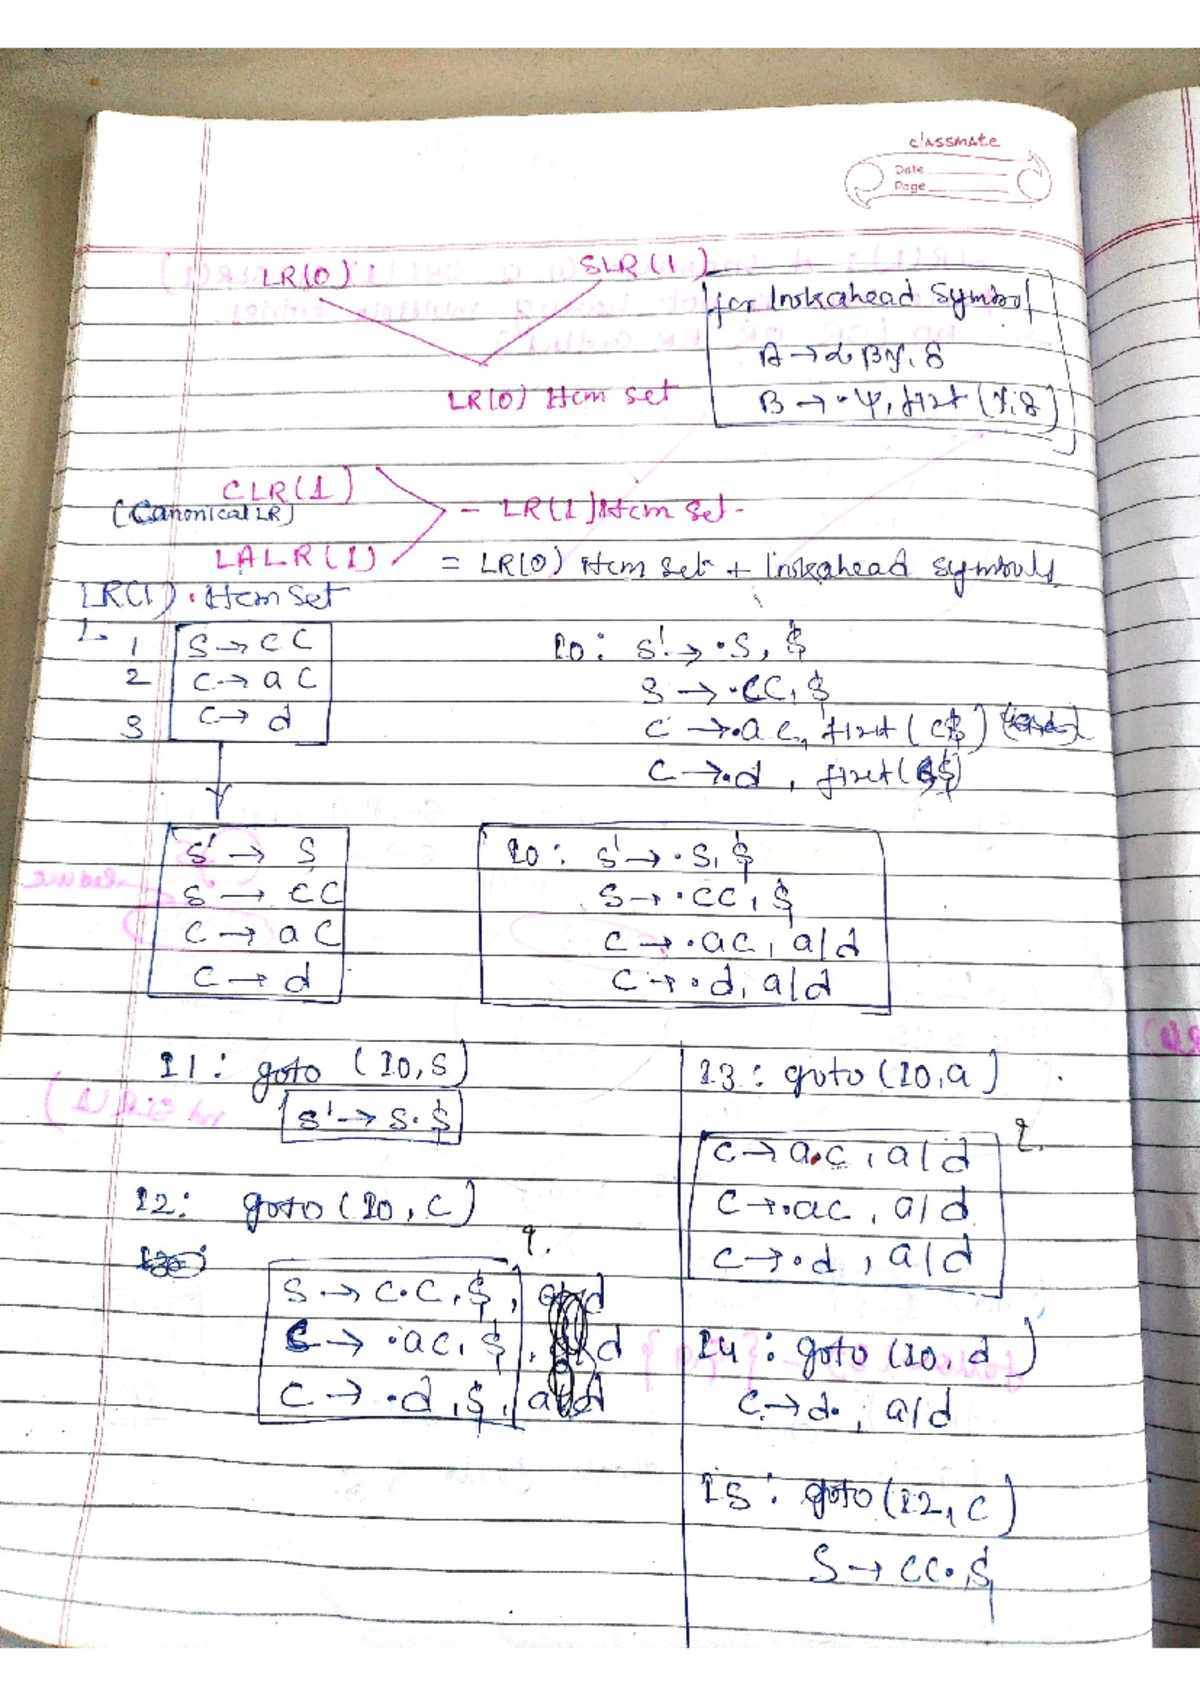 classmate
Date
Page
LR(0) SLR(1)
for lookahead Symbol
A → α·Bγ, δ
B → ·Ψ, first (γ, δ)
LR(0) Item set
CLR(1)
(Canonical LR)
- LR(1) Item Set -
LALR(1)
= LR(0) Item set + lookahead symbols
LR(1) · Item Set
1 S → CC
2 C → aC
3 C → d
I0: S' → ·S, $
S → ·CC, $
C → ·aC, first (C$)
C → ·d, first (C$)
S' → S
S → CC
C → aC
C → d
I0: S' → ·S, $
S → ·CC, $
C → ·aC, a/d
C → ·d, a/d
I1: goto (I0, S)
S' → S· $
I2: goto (I0, C)
S → C·C, $
C → ·aC, $
C → ·d, $
I3: goto (I0, a)
C → a·C, a/d
C → ·aC, a/d
C → ·d, a/d
I4: goto (I0, d)
C → d·, a/d
I5: goto (I2, C)
S → CC·, $